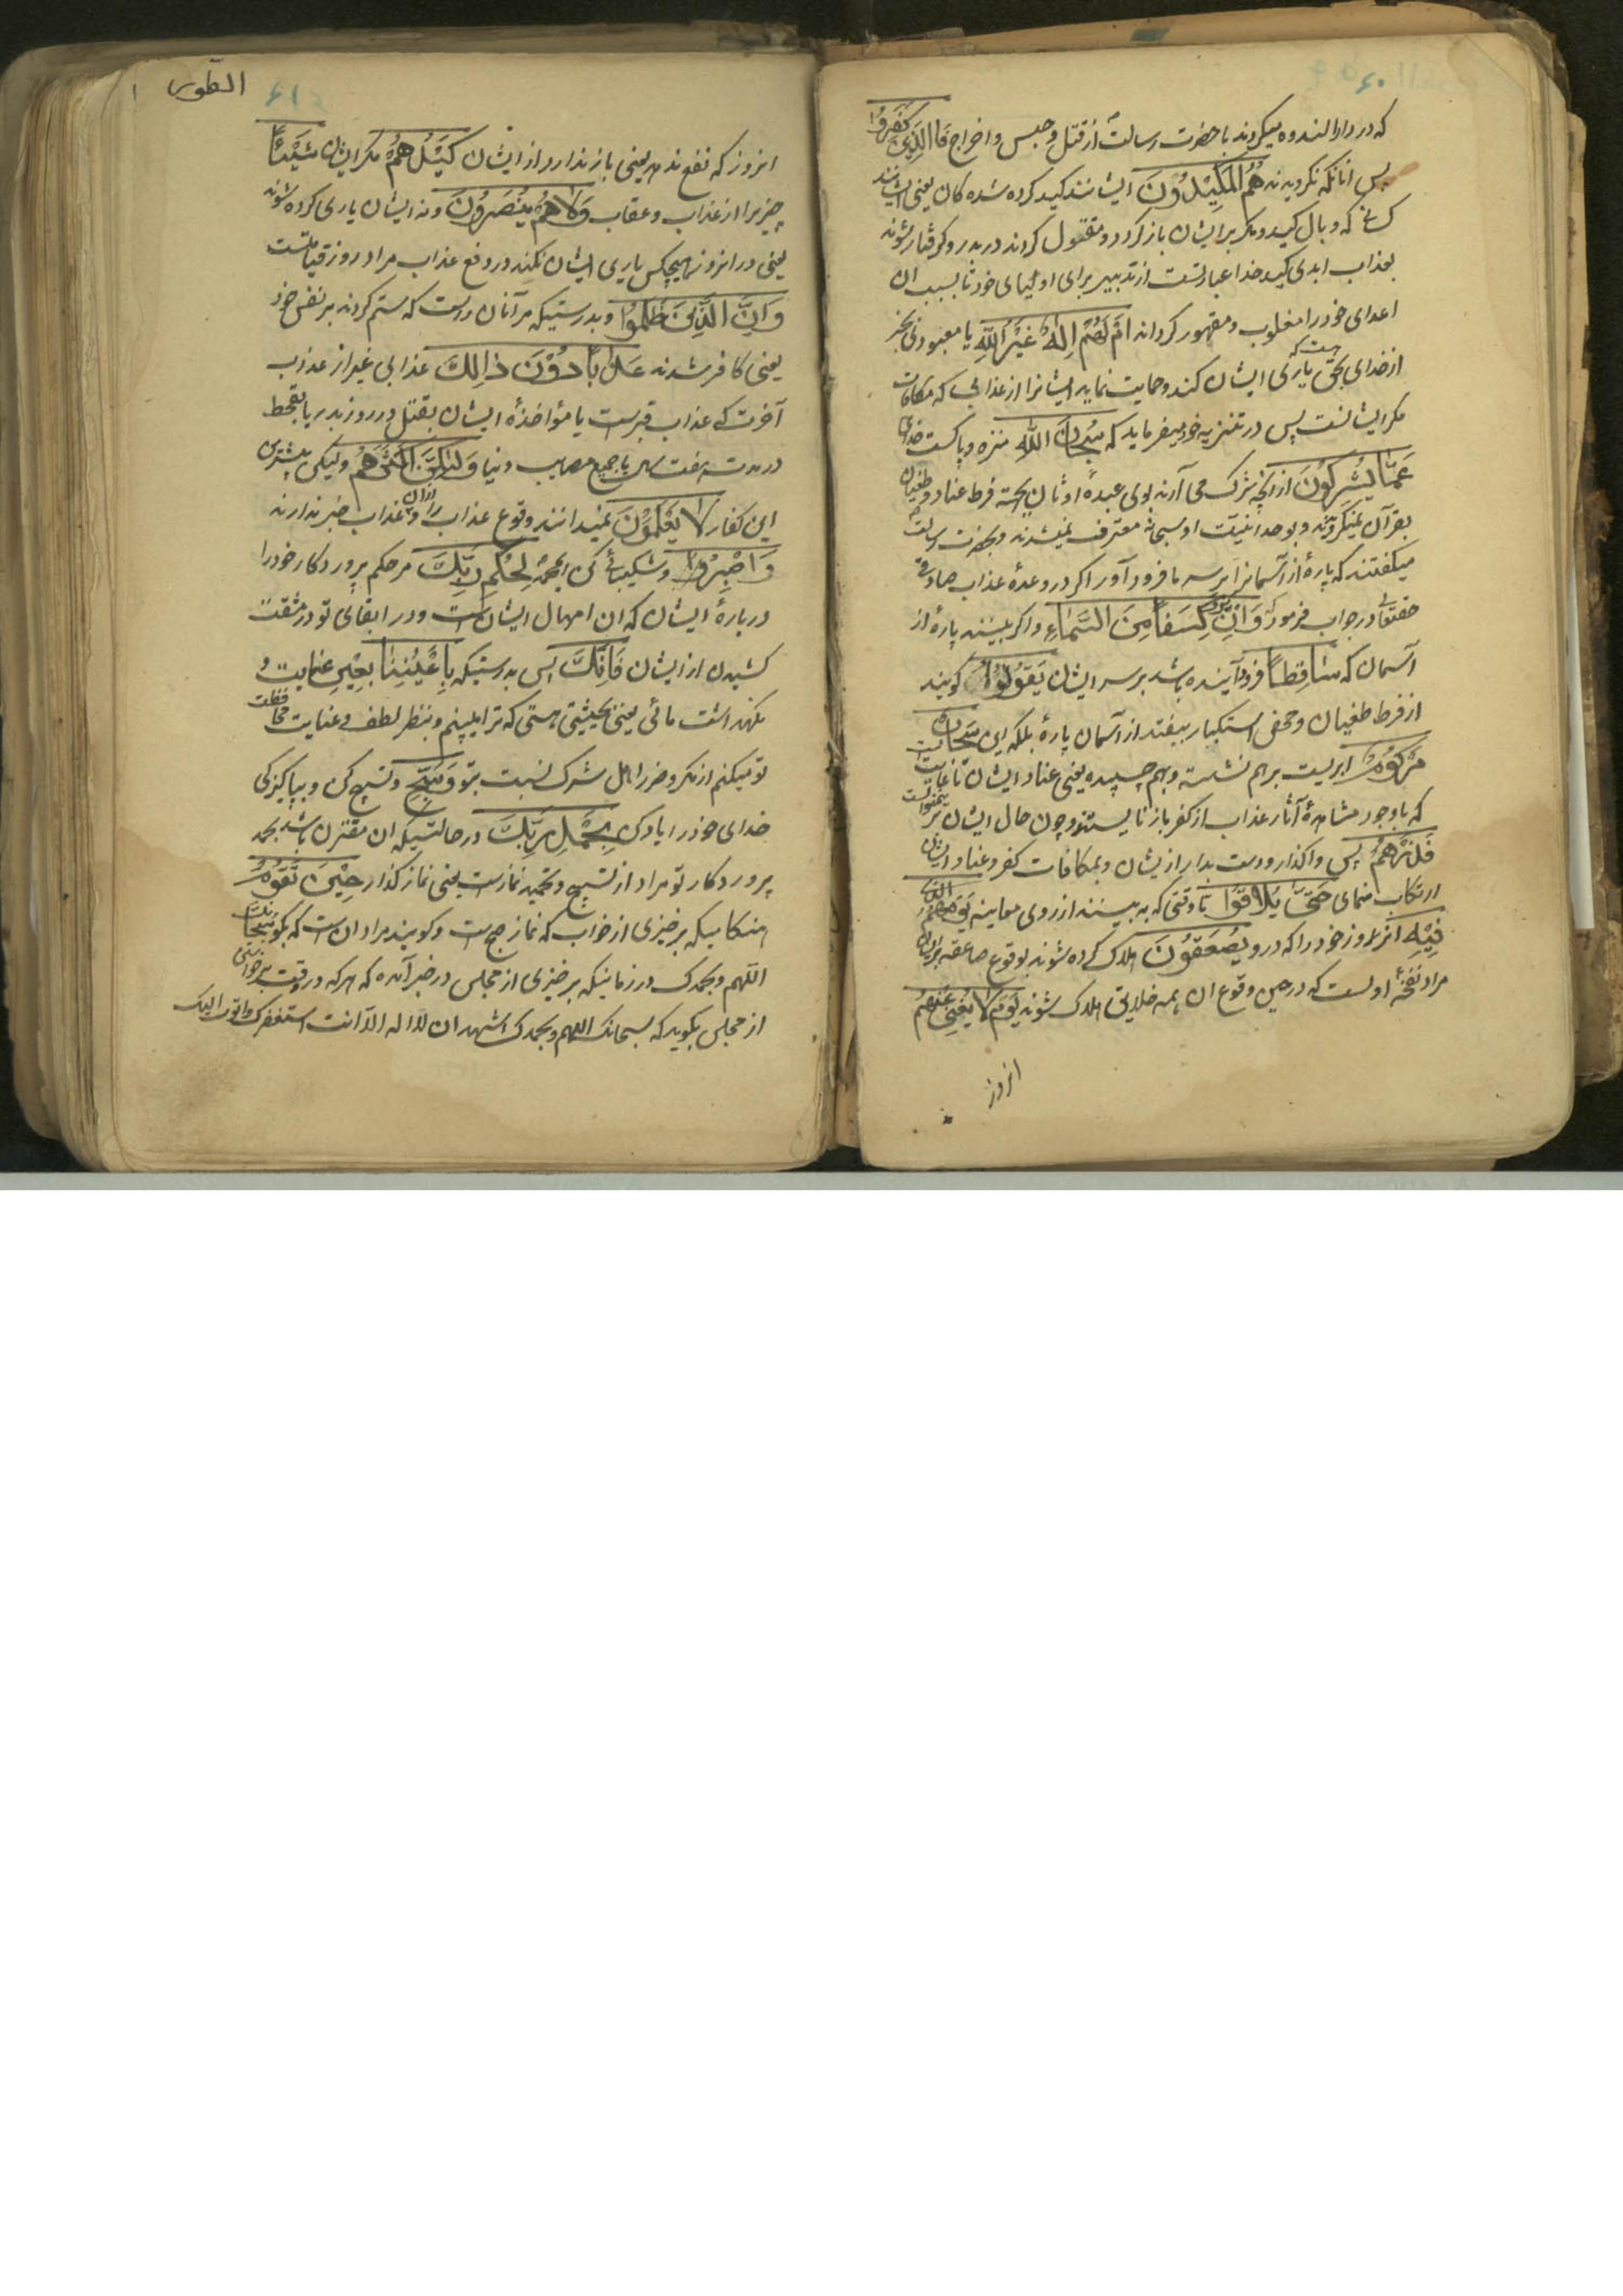 که در دارالندوه میکردند با حضرت رسالت از قتل و حبس و اخراج فَالَّذِینَ کَفَرُوا
پس انانکه نکرویدند هُمُ الْمَکِیْدُوْنَ ایشانند کید کرده شده کان یعنی ایشانند
که وبال کید و مکر بر ایشان باز کردد و مقتول کردند در بدر و کرفتار شوند
بعذاب ابدی کید خدا عبارتست از تدبیر برای اولیای خود تا بسبب ان
اعدای خود را مغلوب و مقهور کرداند اَمْ لَهُمْ اِلٰهٌ غَیْرُ اللّٰهِ یا معبودی بجز
از خدای بحق هست که یاری ایشان کند و حمایت نماید ایشانرا از عذابی که مکافات
مکر ایشانست پس در تنزیه خود میفرماید که سُبْحَانَ اللّٰهِ منزه و پاکست خدای
عَمَّا یُشْرِکُوْنَ از انچه شرک می آرند بوی عبدهٔ اوثان بجهة فرط عناد و طغیان
بقرآن نمیکرویدند و بوحدانیت او سبحانه معترف نمیشدند و بحضرت رسالت
میکفتند که پارهٔ از آسمانرا بر سر ما فرود آور اکر در وعدهٔ عذاب صادقی
حقتعالی در جواب فرمود که وَاِنْ یَرَوْا کِسْفًا مِنَ السَّمَاءِ و اکر ببینند پارهٔ از
آسمان که سَاقِطًا فرود آینده باشد بر سر ایشان یَقُوْلُوْا کویند
از فرط طغیان و محض استکبار بیفتد از آسمان پارهٔ بلکه این سَحَابٌ
مَرْکُوْمٌ ابریست بر هم نشسته و بهم چسپیده یعنی عناد ایشان تا غایت
که با وجود مشاهدهٔ آثار عذاب از کفر باز نایستند و چون حال ایشان برین منوالست
فَذَرْهُمْ پس واکذار و دست بدار از یشان و بمکافات کفر و عناد ایشان
ارتکاب منمای حَتّٰی یُلَاقُوْا تا وقتی که به بینند از روی معاینه یَوْمَهُمُ الَّذِی
فِیْهِ آنروز خود را که درو یُصْعَقُوْنَ هلاک کرده شوند بوقوع صاعقه بر ایشان
مراد نفخهٔ اولست که در حین وقوع ان همه خلایق هلاک شوند یَوْمَ لَا یُغْنِی عَنْهُمْ
انروز
الطور
۶۱
انروز که نفع ندهد یعنی باز ندارد از ایشان کَیْدُهُمْ مکر ایشان شَیْئًا
چیزیرا از عذاب و عقاب وَلَا هُمْ یُنْصَرُوْنَ و نه ایشان یاری کرده شوند
یعنی در انروز هیچکس یاری ایشان نکند در دفع عذاب مراد روز قیامتست
وَاِنَّ الَّذِینَ ظَلَمُوْا و بدرستیکه مر آنان راست که ستم کردند بر نفس خود
یعنی کافر شدند عَذَابًا دُوْنَ ذَالِكَ عذابی غیر از عذاب
آخرت که عذاب قبرست یا مؤاخذهٔ ایشان بقتل در روز بدر یا بقحط
در مدت هفت سال یا جمیع مصایب دنیا وَلٰکِنَّ اَکْثَرَهُمْ ولیکن بیشتری
این کفار لَا یَعْلَمُوْنَ نمیدانند وقوع عذاب را و از ان عذاب خبر ندارند
وَاصْبِرْ و شکیبائی کن ای محمد لِحُکْمِ رَبِّكَ مر حکم پروردکار خود را
در بارهٔ ایشان که ان امهال ایشان است و در ابقای تو در مشقت
کشیدن از ایشان فَاِنَّكَ پس بدرستیکه بِاَعْیُنِنَا بعین عنایت و
نکهداشت مائی یعنی بحیثیتی هستی که ترا میبینم و بنظر لطف و عنایت محافظت
تو میکنم از مکر و ضرر اهل شرک نسبت بتو وَسَبِّحْ و تسبیح کن و بپاکیزکی
خدای خود را یاد کن بِحَمْدِ رَبِّكَ در حالتیکه ان مقترن باشد بحمد
پروردکار تو مراد از تسبیح و تحمید نمازست یعنی نماز کذار حِیْنَ تَقُوْمُ
هنکامیکه بر خیزی از خواب که نماز صبح ست و کویند مراد ان است که بکو سبحانك
اللهم و بحمدک در زمانیکه بر خیزی از مجلس در خبر آمده که هر که در وقت برخواستن
از مجلس بکوید که سبحانک اللهم و بحمدک اشهد ان لا اله الا انت استغفرک و اتوب الیک